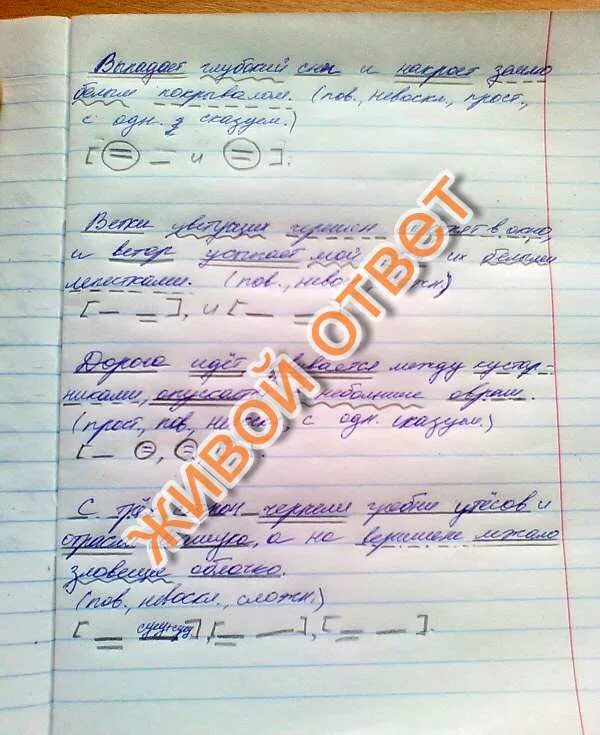 Выпадает глубокий снег и накроет землю
белым покрывалом. (пов., невоскл., прост.,
с одн. сказуем.)
[ = – и = ].
Ветки цветущих черешен в окно,
и ветер усыпает мой их белыми
лепестками. (пов., нево
[ – = ], и [ – =
Дорога идёт между кустар-
никами, небольшие овраги.
(прост., пов., с одн. сказуем.)
[ – =, =
С чернели гребни утёсов и
а на вершине лежало
зловещее облачко.
(пов., невоскл., сложн.)
[ = сущ. и сущ ], [ = – ], [ = – ].
ЖИВОЙ ОТВЕТ